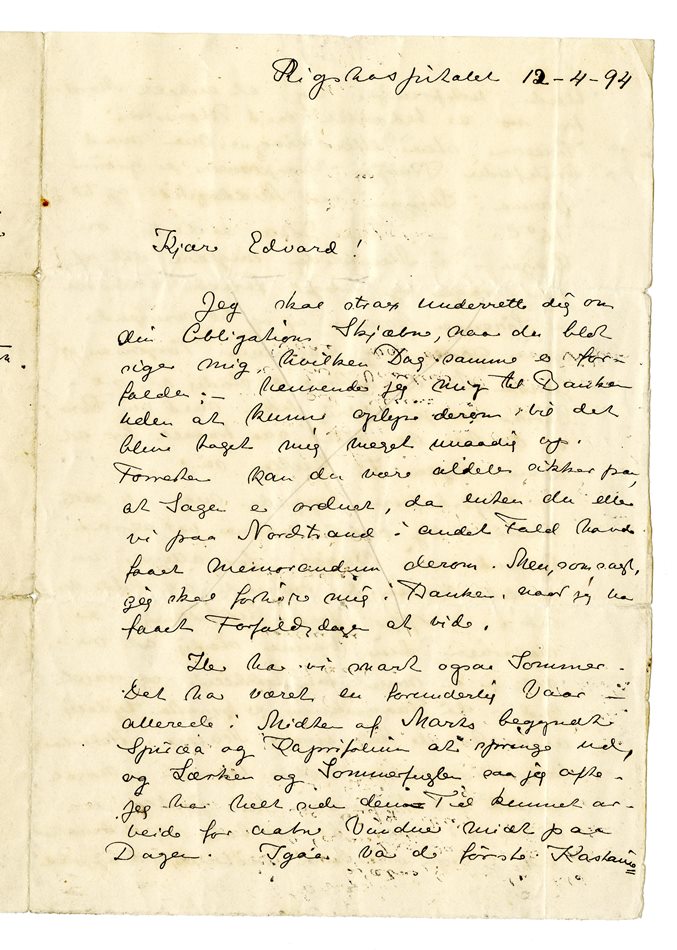 Rigshospitalet 12-4-94
Kjære Edvard!
Jeg skal strax underrette dig om
din Obligations Skjæbne, naar du blot
siger mig, hvilken Dag samme er for-
falden; – henvender jeg mig til Banken
uden at kunne oplyse derom vil det
blive taget mig meget unaadig op.
Forresten kan du være aldeles sikker paa,
at Sagen er ordnet, da enten du eller
vi paa Nordstrand i andet Fald havde
faaet Memorandum derom. Men, som sagt,
jeg skal forhøre mig i Banken, naar jeg har
faaet Forfaldsdagen at vide.
Her har vi snart ogsaa Sommer.
Det har været en forunderlig Vaar –
allerede i Midten af Marts begyndte
Spiræa og Kaprifolium at springe ud,
og Lærken og Sommerfuglen saa jeg ofte.
Jeg har helt siden den Tid kunnet ar-
beide for aabne Vinduer midt paa
Dagen. Igaar var de første Kastanie=